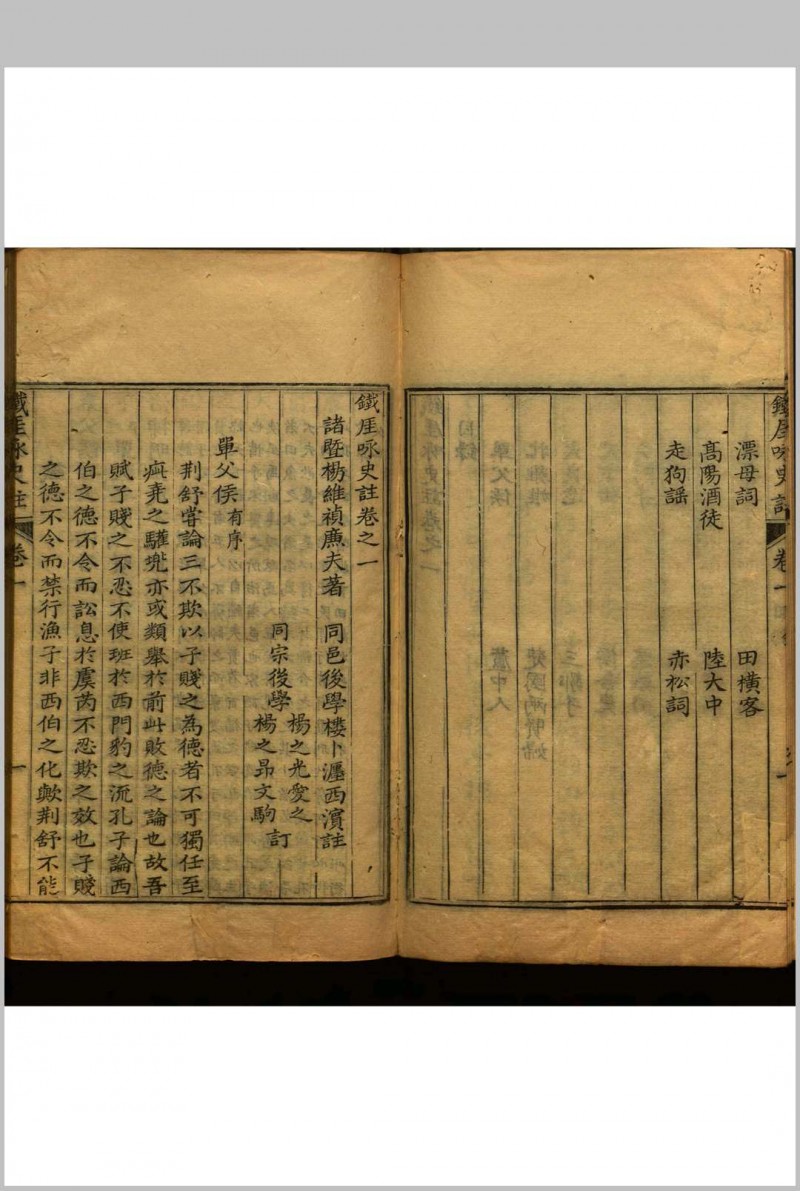 漂母詞　田橫客
高陽酒徒　陸大中
走狗謠　赤松詞
鐵厓咏史註卷之一
諸暨楊維禎廉夫著　同邑後學樓卜瀍西濱註
同宗後學　楊之光愛之
楊之昂文駒　訂
單父侯有序
荆舒嘗論三不欺以子賤之為德者不可獨任至
疵尭之驩兠亦或類舉於前此敗德之論也故吾
賦子賤之不忍不使班於西門豹之流孔子論西
伯之德不令而訟息於虞芮不忍欺之效也子賤
之德不令而禁行漁子非西伯之化歟荆舒不能
鐵厓咏史註　卷一　一